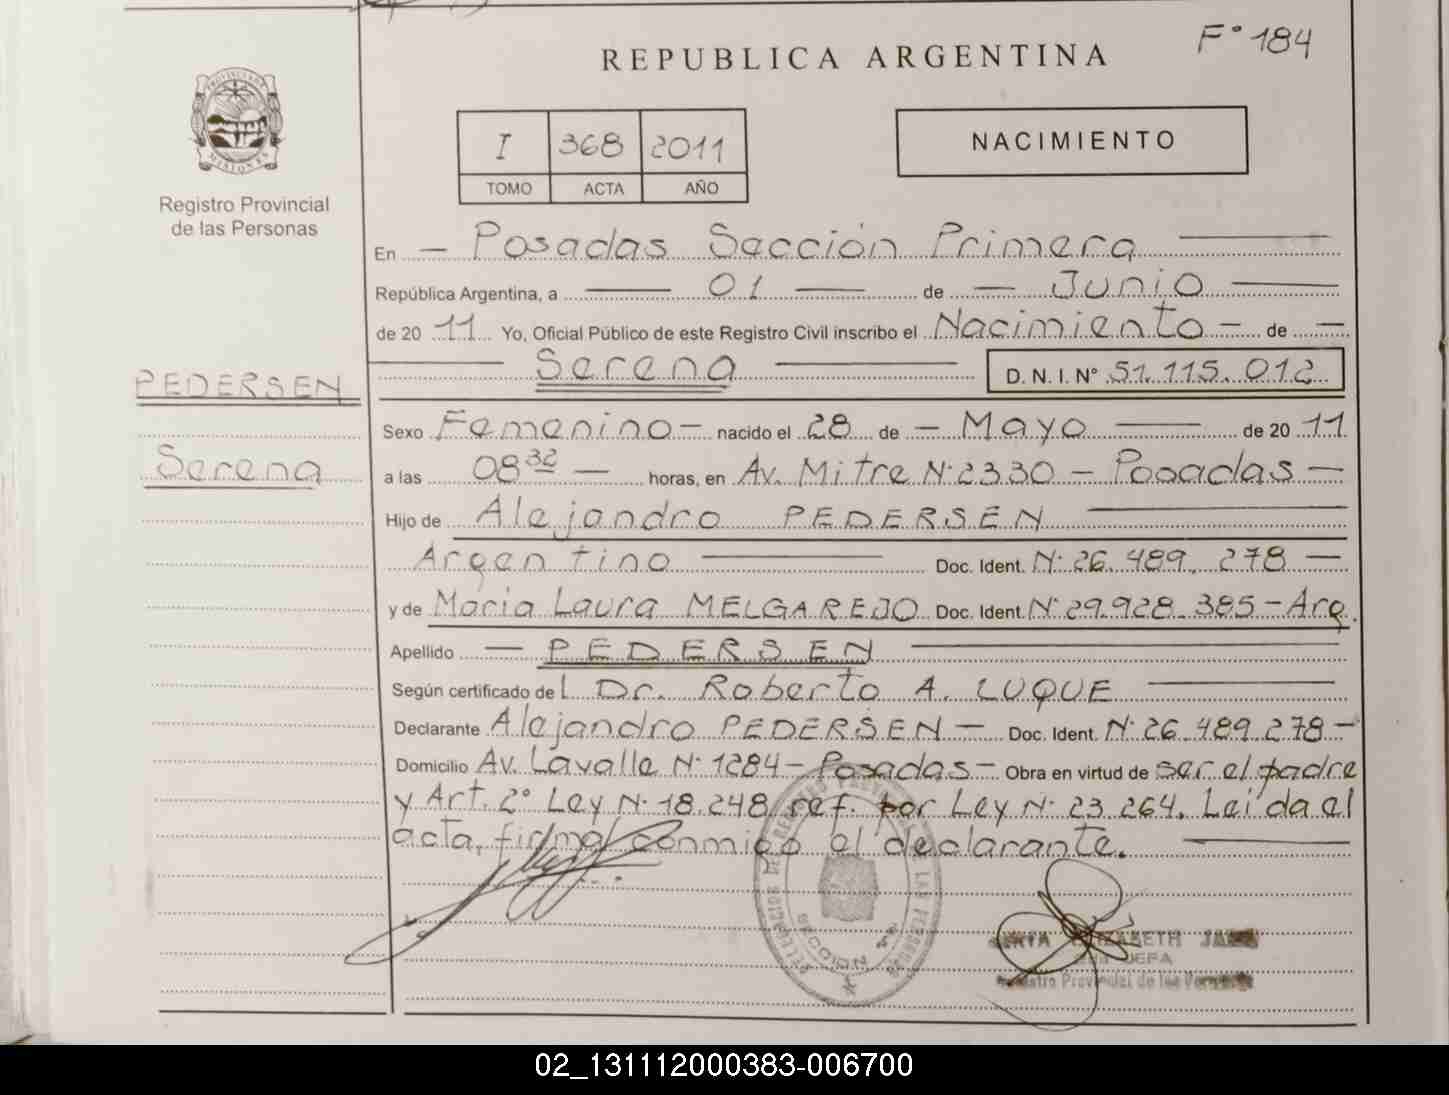 F° 184
REPUBLICA ARGENTINA
PROVINCIA DE
MISIONES
Registro Provincial
de las Personas
I 368 2011
TOMO ACTA AÑO
NACIMIENTO
En — Posadas Sección Primera —
República Argentina, a — 01 — de — Junio —
de 20 11 Yo, Oficial Público de este Registro Civil inscribo el Nacimiento — de —
— Serena — D. N. I. N° 51.115.012
PEDERSEN
Sexo Femenino — nacido el 28 de — Mayo — de 20 11
Serena
a las 08 32 — horas, en Av. Mitre N° 2330 — Posadas —
Hijo de Alejandro PEDERSEN —
Argentino — Doc. Ident. N° 26.489.278 —
y de Maria Laura MELGAREJO Doc. Ident. N° 29.928.385 — Arg.
Apellido — PEDERSEN —
Según certificado del Dr. Roberto A. LUQUE —
Declarante Alejandro PEDERSEN — Doc. Ident. N° 26.489.278 —
Domicilio Av. Lavalle N° 1284 — Posadas — Obra en virtud de ser el padre
y Art. 2° Ley N° 18.248 ref. por Ley N° 23.264. Leída el
acta, firma conmigo el declarante. —
SECCION
ELIZABETH
JEFA
Registro Provincial de las Personas
02_131112000383-006700